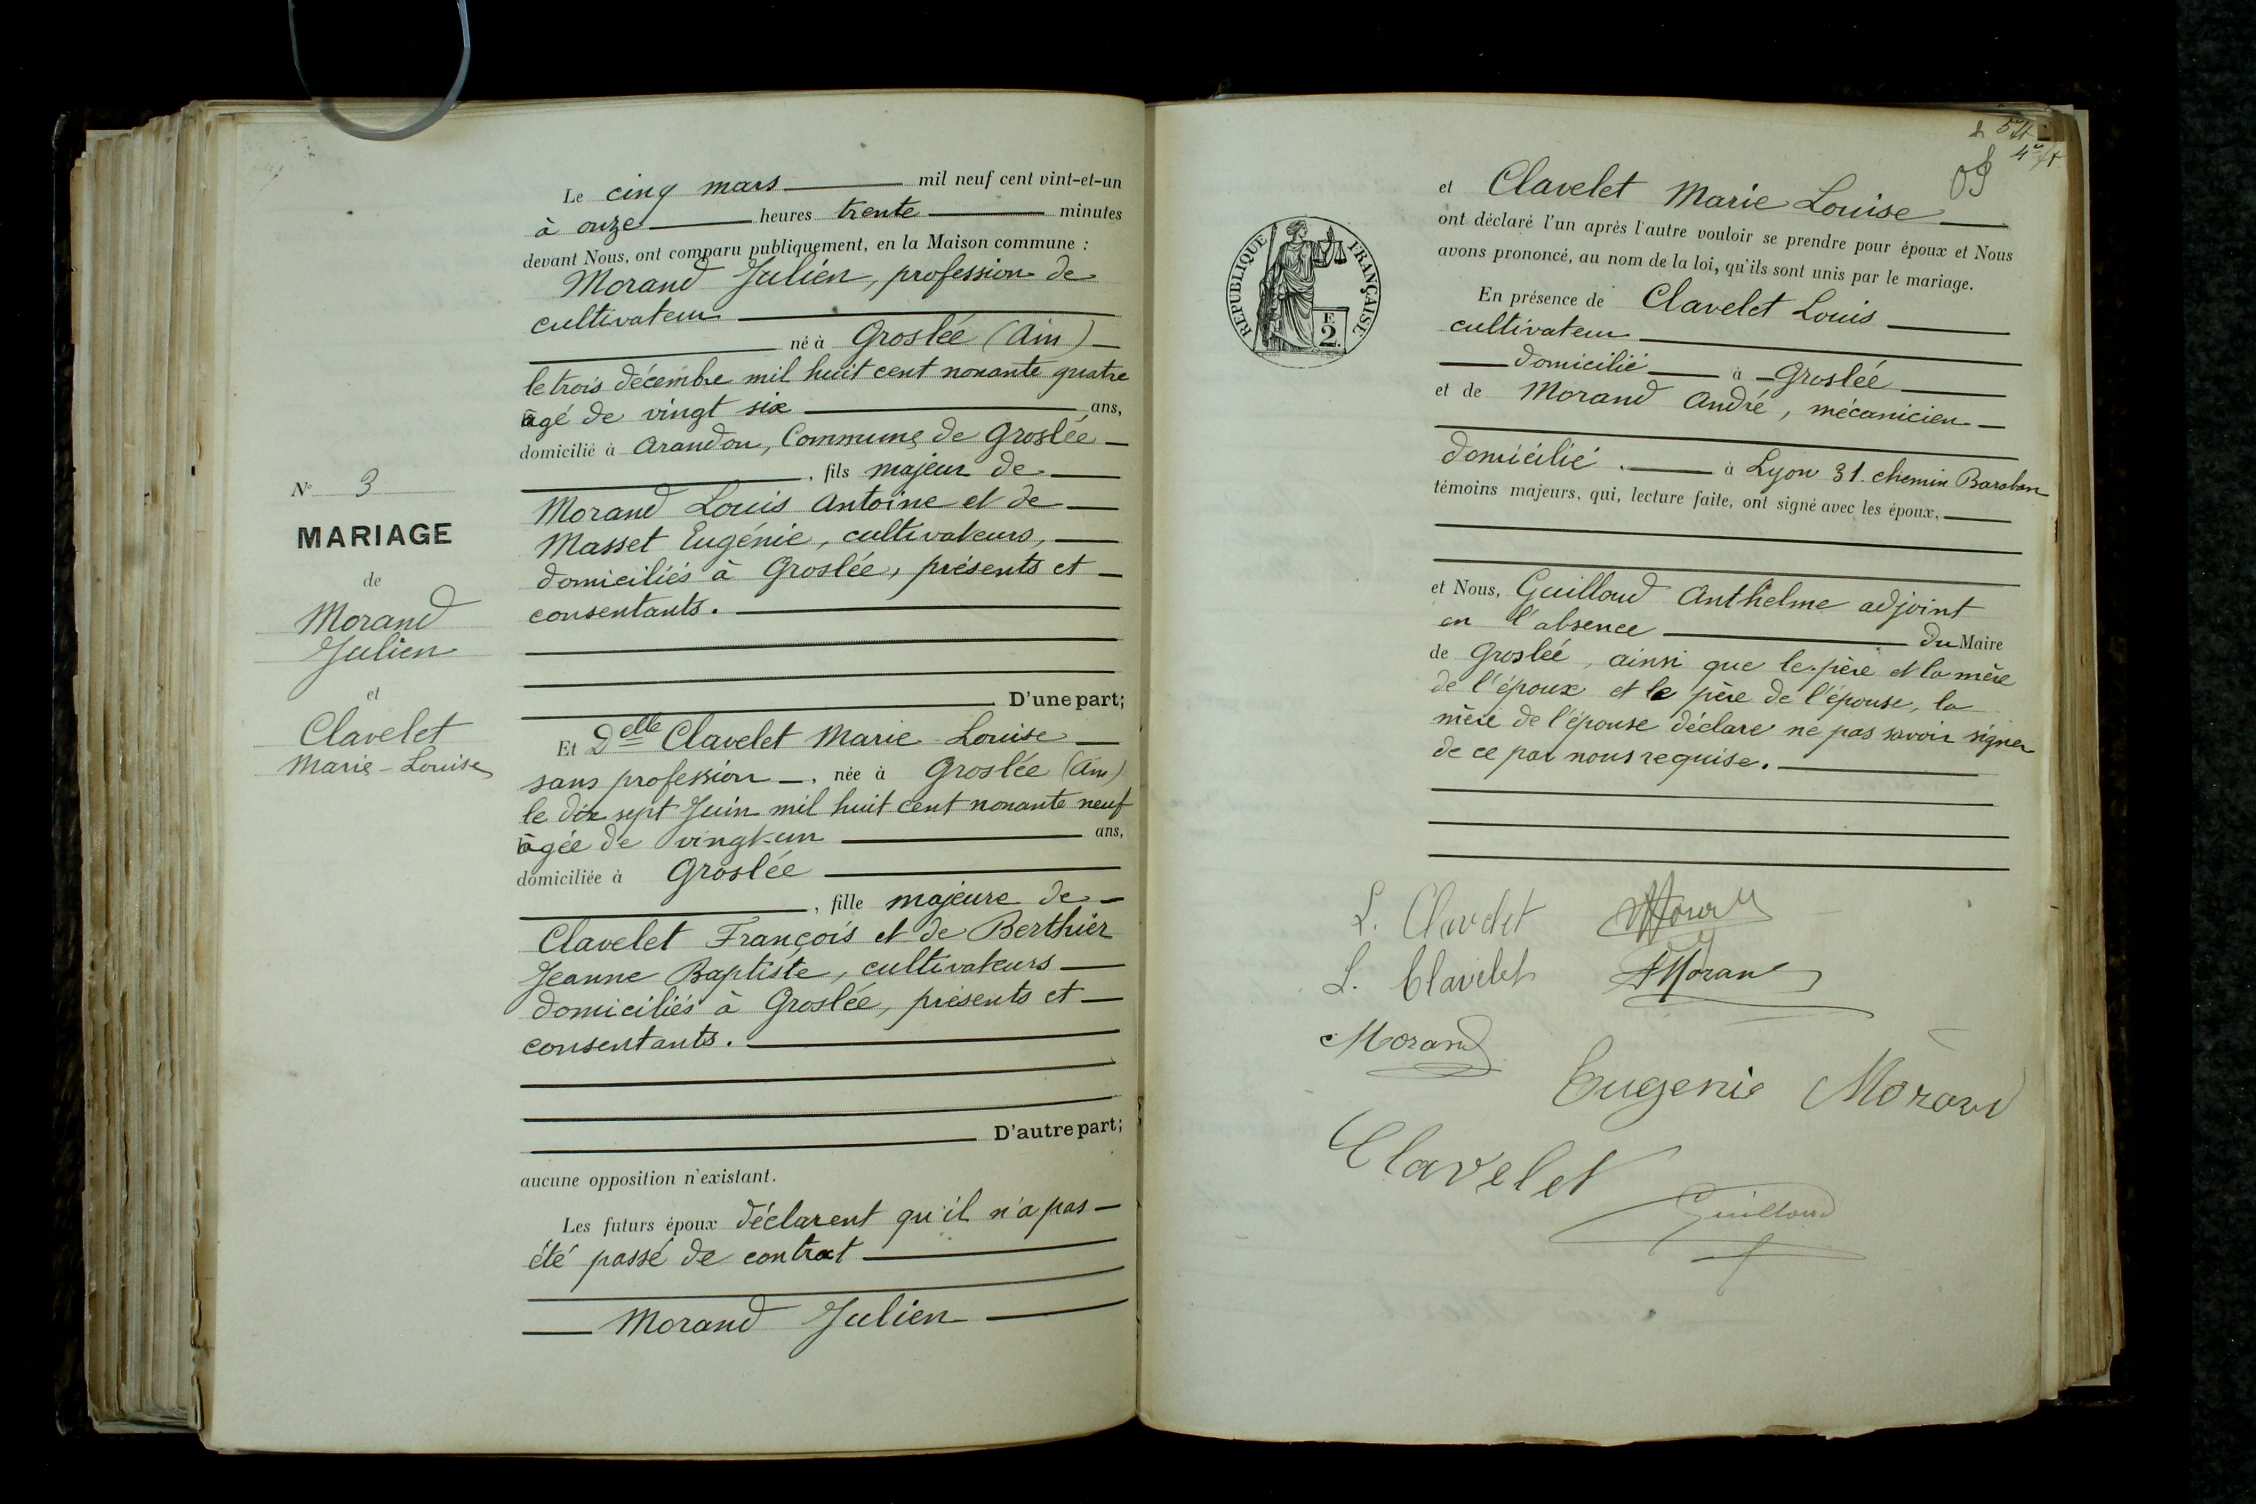 N° 3
MARIAGE
de
Morand
Julien
et
Clavelet
Marie-Louise
Le cinq mars mil neuf cent vint-et-un
à onze heures trente minutes
devant Nous, ont comparu publiquement, en la Maison commune :
Morand Julien, profession de
cultivateur
né à Groslée (Ain)
le trois décembre mil huit cent nonante quatre
âgé de vingt six ans,
domicilié à Arandon, Commune de Groslée
, fils majeur de
Morand Louis Antoine et de
Masset Eugénie, cultivateurs,
domiciliés à Groslée, présents et
consentants.
D'une part;
Et Delle Clavelet Marie Louise
sans profession, née à Groslée (Ain)
le dix sept Juin mil huit cent nonante neuf
âgée de vingt-un ans,
domiciliée à Groslée
, fille majeure de
Clavelet François et de Berthier
Jeanne Baptiste, cultivateurs
domiciliés à Groslée, présents et
consentants.
D'autre part;
aucune opposition n'existant.
Les futurs époux déclarent qu'il n'a pas
été passé de contrat
Morand Julien
RÉPUBLIQUE FRANÇAISE
F
2.
et Clavelet Marie Louise
ont déclaré l'un après l'autre vouloir se prendre pour époux et Nous
avons prononcé, au nom de la loi, qu'ils sont unis par le mariage.
En présence de Clavelet Louis
cultivateur
domicilié à Groslée
et de Morand André, mécanicien
domicilié à Lyon 31 chemin Baraban
témoins majeurs, qui, lecture faite, ont signé avec les époux,
et Nous, Guilloud Anthelme adjoint
en l'absence du Maire
de Groslée, ainsi que le père et la mère
de l'époux et le père de l'épouse, la
mère de l'épouse déclare ne pas savoir signer
de ce par nous requise.
L. Clavelet
L. Clavelet Morand
Morand
Eugenie Morand
Clavelet
Guilloud